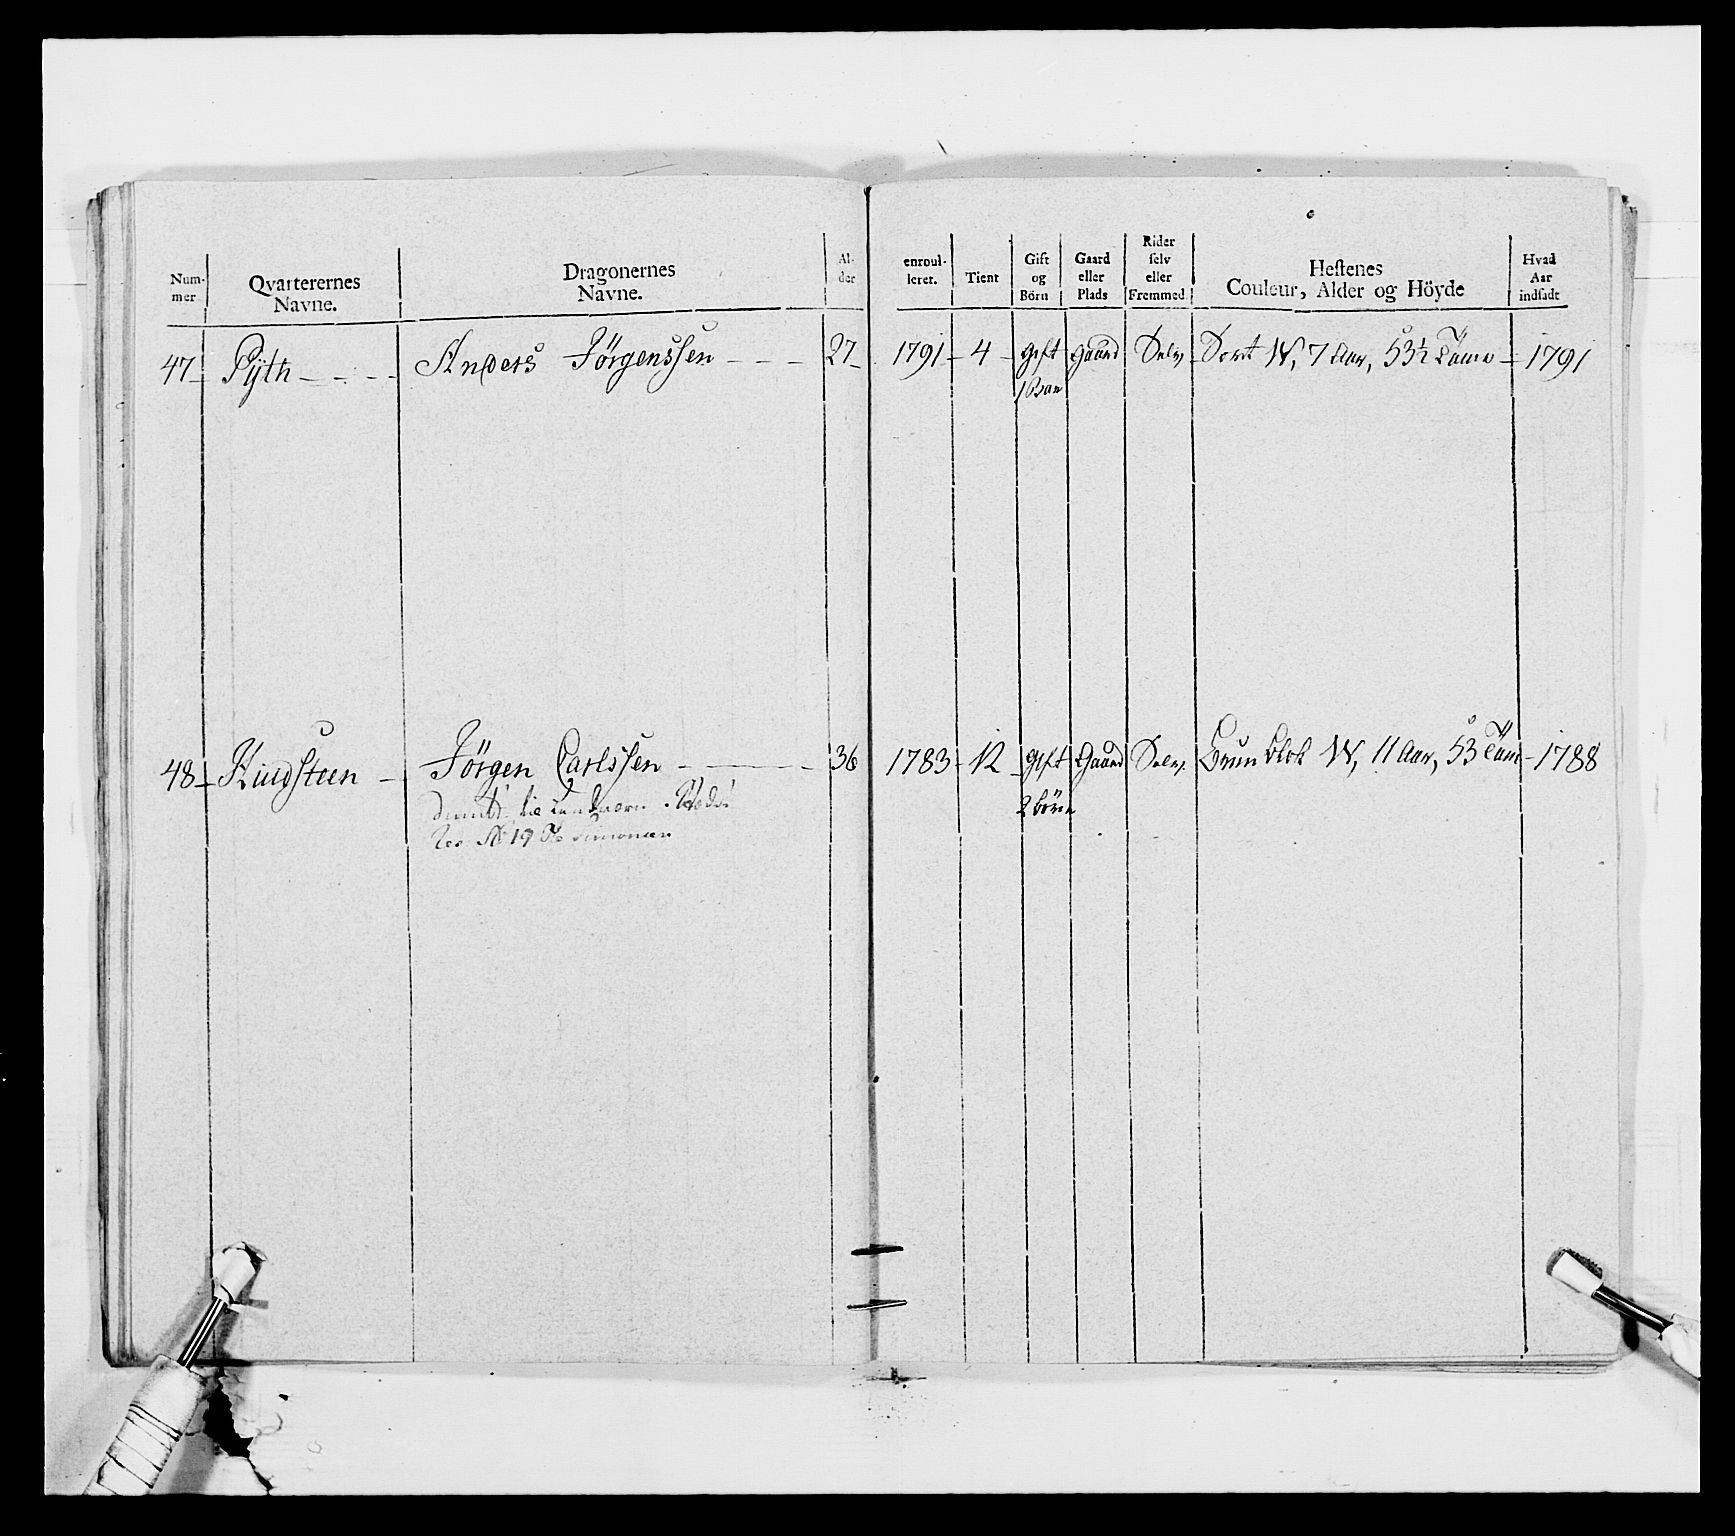 Num-
mer
Qvarterernes
Navne.
Dragonernes
Navne.
Al-
der
enroul-
leret.
Tient
Gift
og
Börn
Gaard
eller
Plads
Rider
selv
eller
Fremmed.
Hestenes
Couleur, Alder og Höyde
Hvad
Aar
indsadt
47 Pÿth Anders Jörgenssen 27 1791 4 gift gaard Selv Sort W, 7 Aar, 53½ Tom 1791
1 Barn
48 Rindsteen Jörgen Carlssen 36 1783 12 gift Gaard Selv Brun W, 11 Aar, 53 Tom 1788
2 börn
No 19